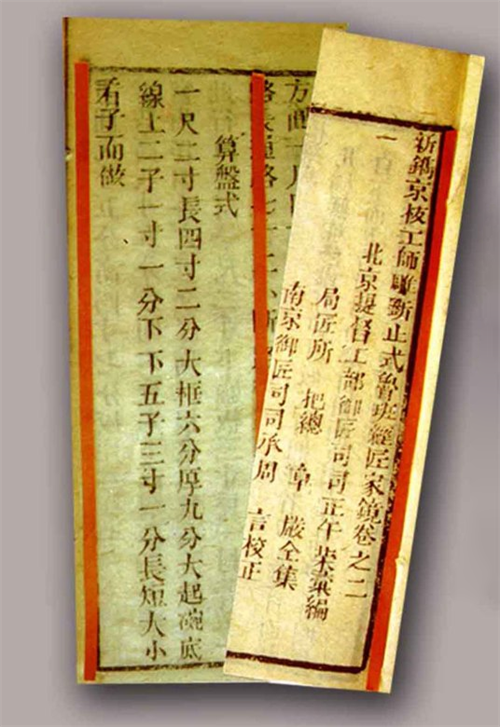 新鐫京板工師雕斲正式魯班經匠家鏡卷之二
一
北京提督工部御匠司司正午榮彙編
局匠所 把總 章 嚴全集
南京御匠司司承周 言校正
算盤式
一尺二寸長四寸二分大框六分厚九分大起碗底
線上二子一寸一分下下五子三寸一分長短大小
看子而做